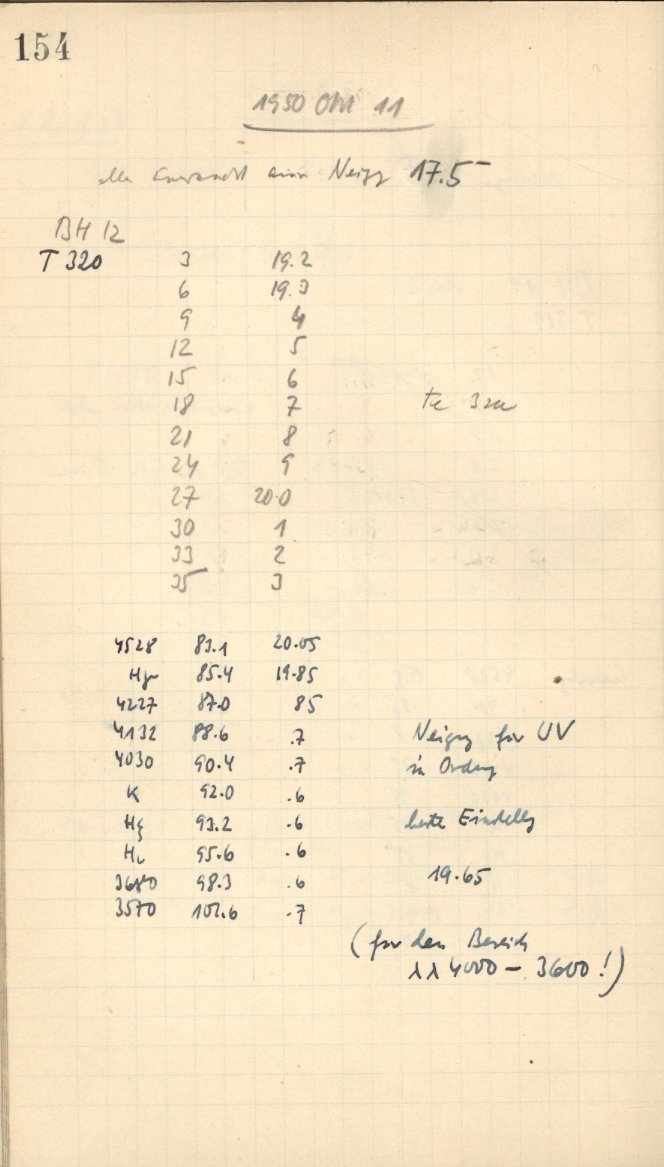 154
1950 Okt 11
Neigg 17.5
BH 12
T 320 3 19.2
6 19.3
9 4
12 5
15 6
18 7
21 8
24 9
27 20.0
30 1
33 2
35 3
4528 83.1 20.05
Hγ 85.4 19.85
4227 87.0 85
4132 88.6 .7
4030 90.4 .7
K 92.0 .6
Hζ 93.2 .6
95.6 .6
3680 98.3 .6
3570 101.6 .7
Neigg für UV
in Ordng
beste Einstellg
19.65
(für den Bereich
λλ 4000 – 3600!)